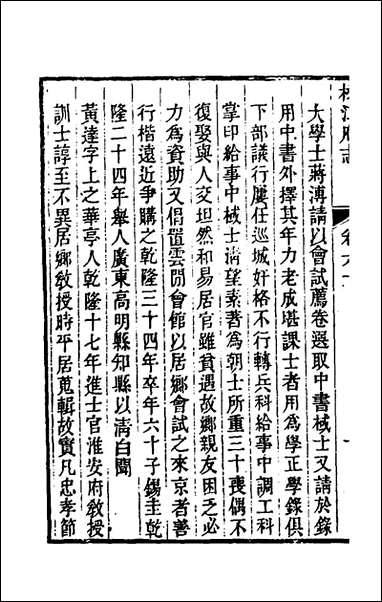 大學士蔣溥請以會試薦卷選取中書棫士又請於錄
用中書外擇其年力老成堪課士者用爲學正學錄俱
下部議行屢任巡城奸格不行轉兵科給事中調工科
掌印給事中棫士淸望素著爲朝士所重三十喪偶不
復娶與人交坦然和易居官雖貧遇故鄕親友困乏必
力爲資助又倡置雲閒會館以居鄕會試之來京者善
行楷遠近爭購之乾隆三十四年卒年六十子錫圭乾
隆二十四年舉人廣東高明縣知縣以淸白聞
黃達字上之華亭人乾隆十七年進士官淮安府敎授
訓士諄至不異居鄕敎授時平居蒐輯故實凡忠孝節